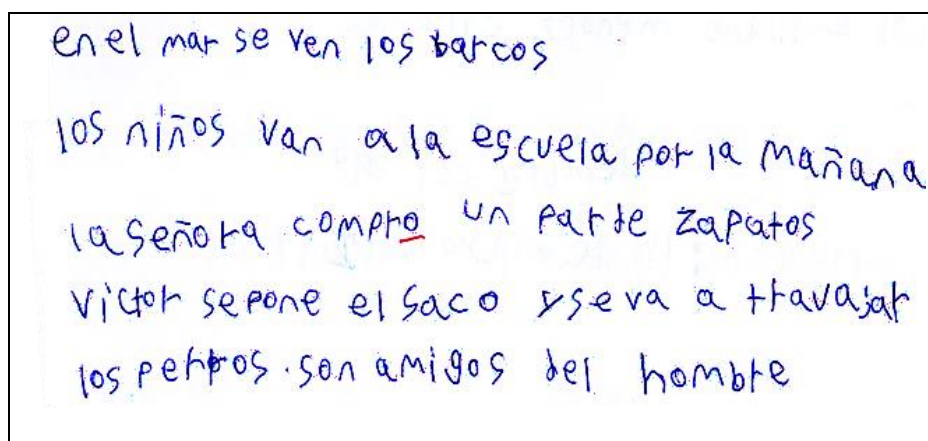 en el mar se ven los barcos
los niños van a la escuela por la mañana
la señora compro un par de zapatos
victor se pone el saco y se va a travajar
los perros. son amigos del hombre